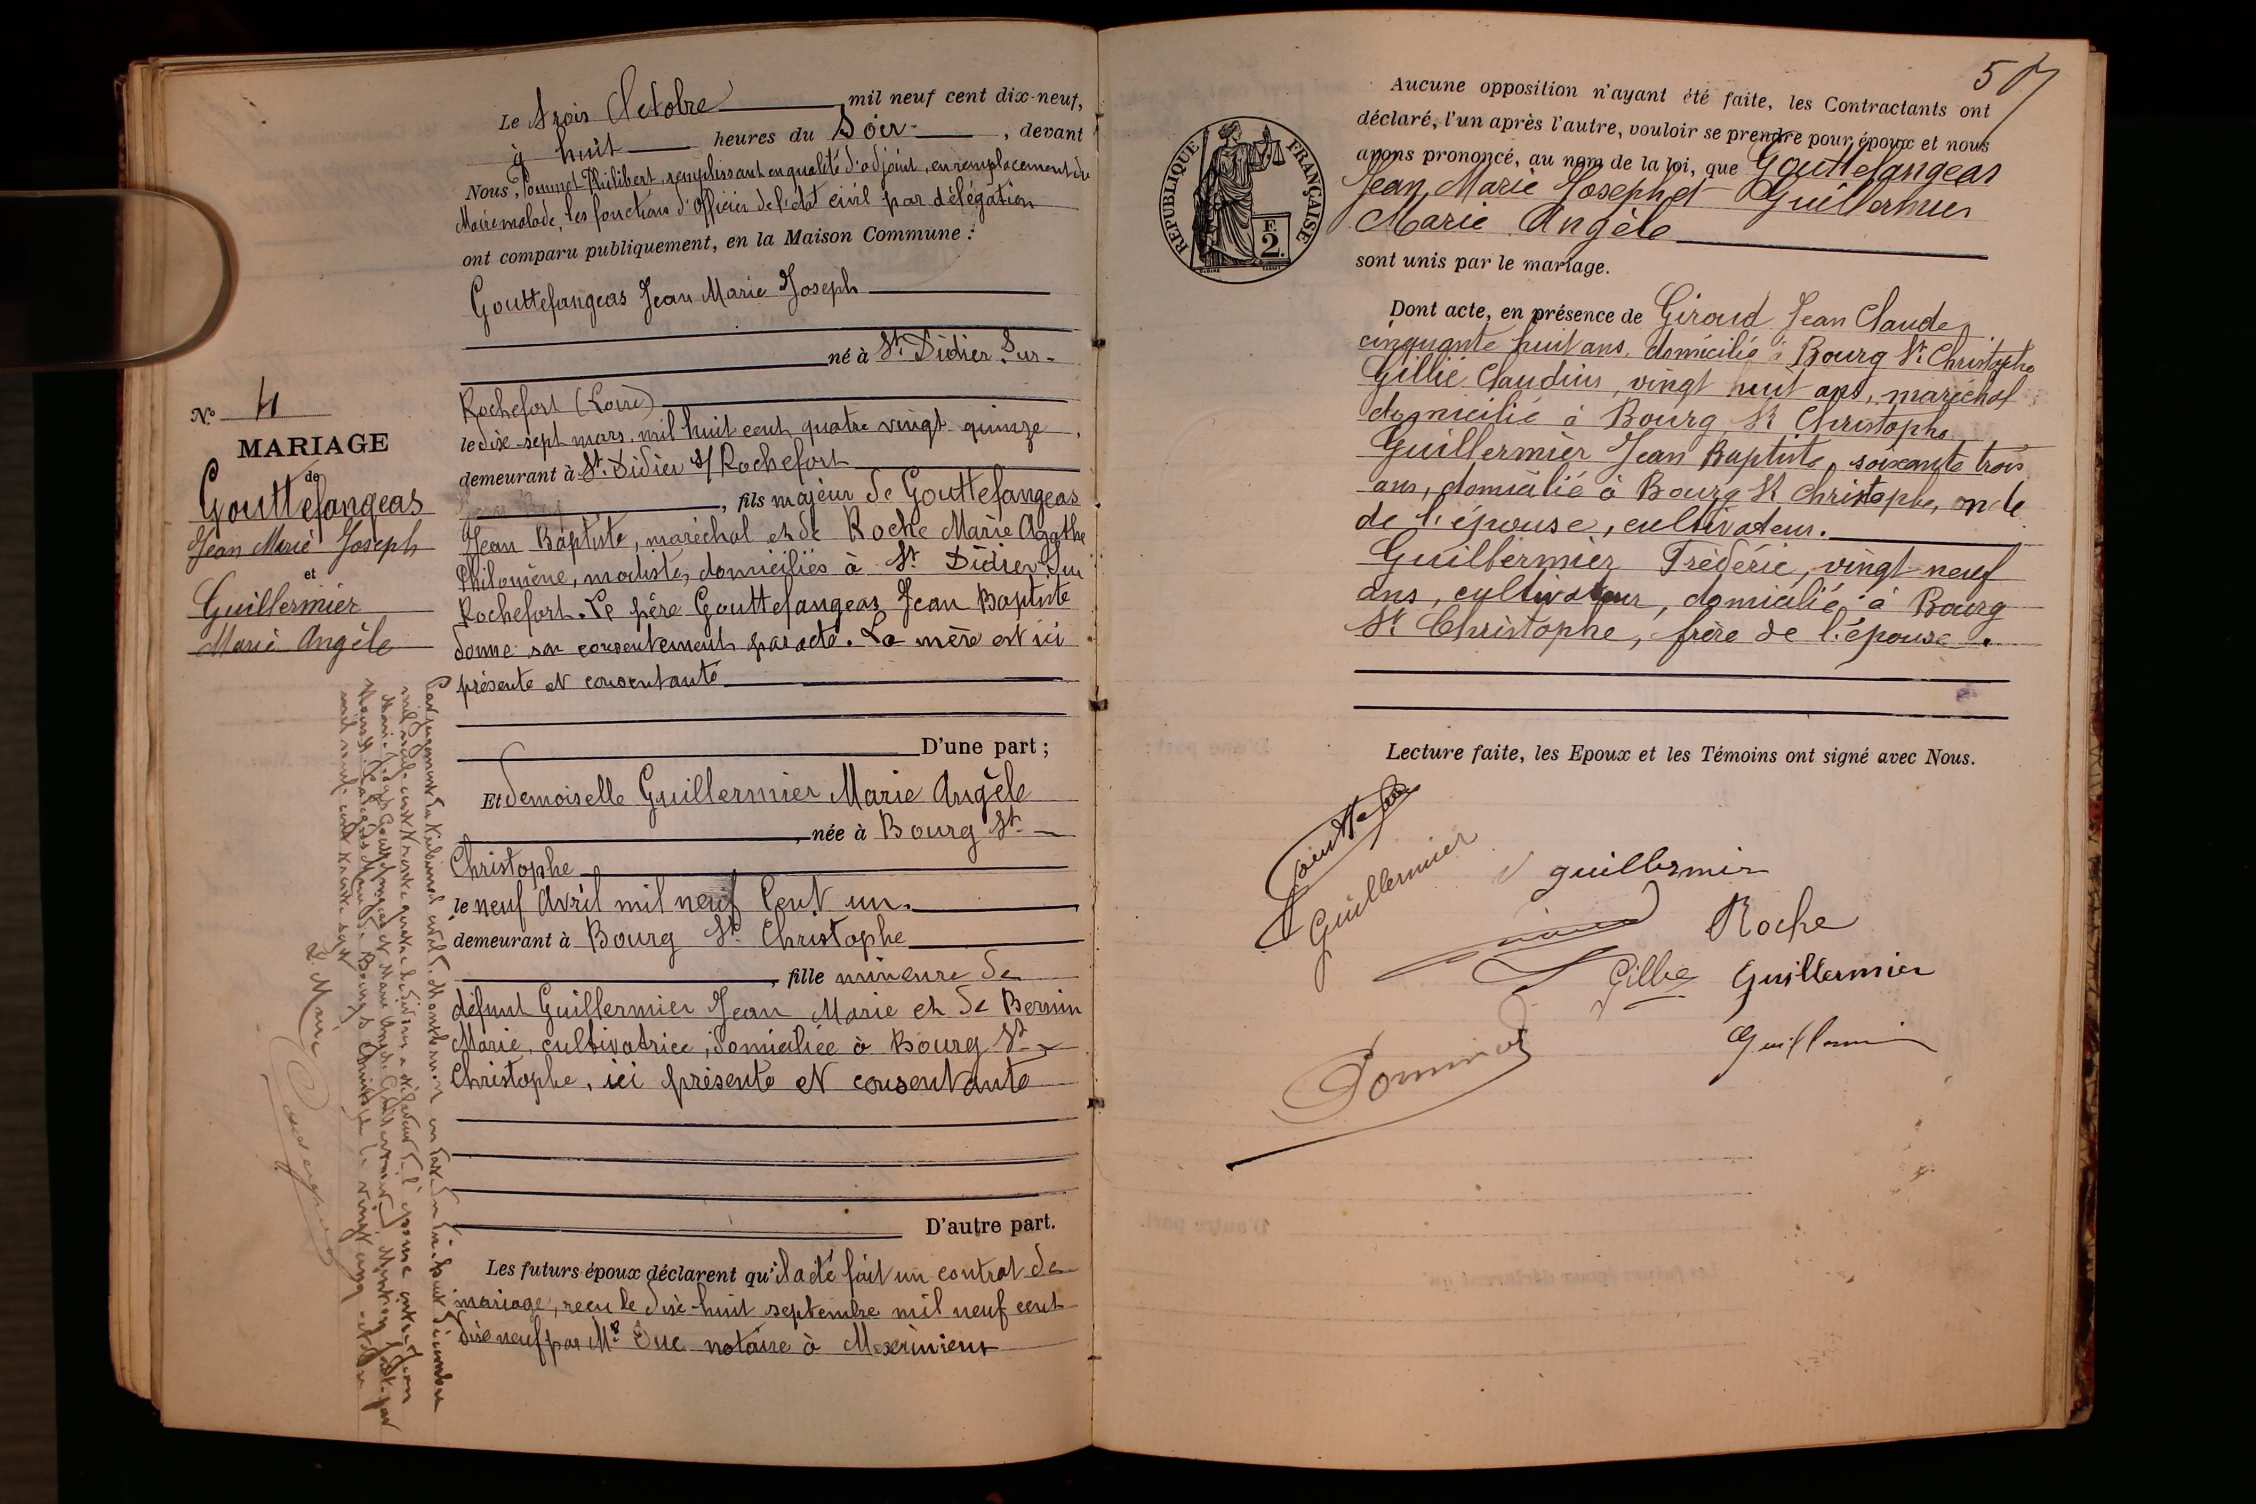 Le trois Octobre mil neuf cent dix-neuf,
à huit heures du Soir, devant
Nous, Pommet Philibert, remplissant en qualité d'adjoint, en remplacement du
Maire malade, les fonctions d'Officier de l'état civil par délégation
ont comparu publiquement, en la Maison Commune :
Gouttefangeas Jean Marie Joseph
né à St Didier Sur-
Rochefort (Loire)
le dix-sept mars mil huit cent quatre vingt quinze,
demeurant à St Didier s/ Rochefort
, fils majeur de Gouttefangeas
Jean Baptiste, maréchal et de Roche Marie Agathe
Philomène, modiste, domiciliés à St Didier Sur
Rochefort. Le père Gouttefangeas Jean Baptiste
donne son consentement par acte. La mère est ici
présente et consentante
D'une part ;
Et demoiselle Guillermier Marie Angèle
née à Bourg St
Christophe
le neuf Avril mil neuf Cent un.
demeurant à Bourg St Christophe
, fille mineure de
défunt Guillermier Jean Marie et de Bernin
Marie, cultivatrice, domiciliée à Bourg St
Christophe, ici présente et consentante
D'autre part.
Les futurs époux déclarent qu'il a été fait un contrat de
mariage, reçu le dix-huit septembre mil neuf cent
dix neuf par Me Duc notaire à Meximieux
No 4
MARIAGE
de
Gouttefangeas
Jean Marie Joseph
et
Guillermier
Marie Angèle
Par jugement du tribunal civil de en date du dix-huit décembre
mil neuf cent trente quatre le divorce a été l'épouse entre Jean
Marie Joseph Gouttefangeas et Marie Angèle Guillermier. Mention faite par
Nous Maire de Bourg St Christophe le vingt cinq
mil neuf cent trente sept
Le Maire
507
Aucune opposition n'ayant été faite, les Contractants ont
déclaré, l'un après l'autre, vouloir se prendre pour époux et nous
avons prononcé, au nom de la loi, que Gouttefangeas
Jean Marie Joseph et Guillermier
Marie Angèle
sont unis par le mariage.
REPUBLIQUE FRANÇAISE
E
2.
Dont acte, en présence de Giroud Jean Claude,
cinquante huit ans, domicilié à Bourg St Christophe
Gillié Claudius, vingt huit ans, maréchal
domicilié à Bourg St Christophe,
Guillermier Jean Baptiste, soixante trois
ans, domicilié à Bourg St Christophe, oncle
de l'épouse, cultivateur.
Guillermier Frédéric, vingt-neuf
ans, cultivateur, domicilié à Bourg
St Christophe, frère de l'épouse.
Lecture faite, les Epoux et les Témoins ont signé avec Nous.
Guillermier
guillermier
Roche
Gillie
Guillermier
Pommet
Guillermier